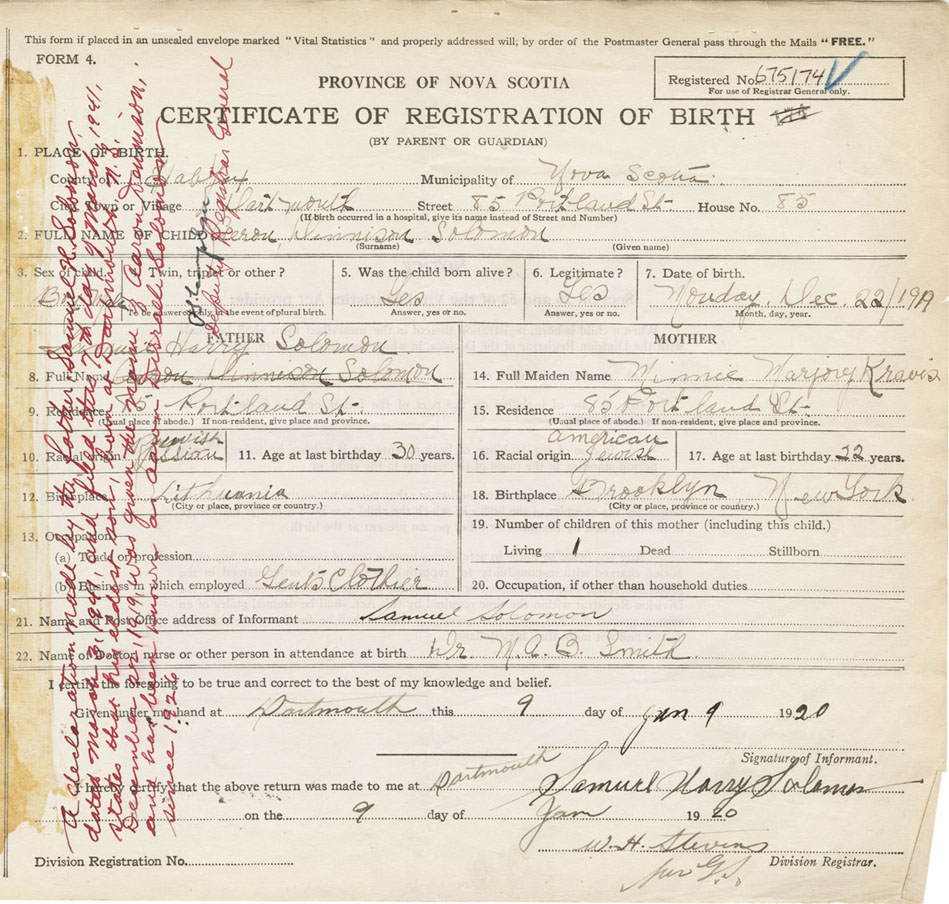 This form if placed in an unsealed envelope marked "Vital Statistics" and properly addressed will, by order of the Postmaster General pass through the Mails "FREE."
FORM 4.
PROVINCE OF NOVA SCOTIA
Registered No. 675174
For use of Registrar General only.
CERTIFICATE OF REGISTRATION OF BIRTH
(BY PARENT OR GUARDIAN)
1. PLACE OF BIRTH.
County of Halifax Municipality of Nova Scotia
City, Town or Village Dartmouth Street 85 Portland St. House No. 85
(If birth occurred in a hospital, give its name instead of Street and Number)
2. FULL NAME OF CHILD Aeron Dinnison Solomon
(Surname) (Given name)
3. Sex of child. Twin, triplet or other? 5. Was the child born alive? 6. Legitimate? 7. Date of birth.
Boy Yes Yes Monday. Dec. 22/1919
To be answered only, in the event of plural birth. Answer, yes or no. Answer, yes or no. Month, day, year.
FATHER MOTHER
Samuel Harry Solomon
8. Full Name Aaron Dinnison Solomon 14. Full Maiden Name Minnie Marjory Kravis
9. Residence 85 Portland St. 15. Residence 85 Portland St.
(Usual place of abode.) If non-resident, give place and province. (Usual place of abode.) If non-resident, give place and province.
Jewish american
10. Racial origin Russian 11. Age at last birthday 30 years. 16. Racial origin Jewish 17. Age at last birthday 22 years.
12. Birthplace Lithuania 18. Birthplace Brooklyn New York
(City or place, province or country.) (City or place, province or country.)
13. Occupation 19. Number of children of this mother (including this child.)
(a) Trade or profession Living 1 Dead Stillborn
(b) Business in which employed Gents Clothier 20. Occupation, if other than household duties
21. Name and Post Office address of Informant Samuel Solomon
22. Name of Doctor, nurse or other person in attendance at birth Dr M. A. B. Smith
I certify the foregoing to be true and correct to the best of my knowledge and belief.
Given under my hand at Dartmouth this 9 day of Jan 9 1920
Signature of Informant.
I hereby certify that the above return was made to me at Dartmouth Samuel Harry Solomon
on the 9 day of Jan 1920
W. H. Stevens
Division Registration No. Division Registrar.
A declaration made by the father, Samuel H. Solomon,
dated March 3, 1941, and filed this 7th day of March, 1941,
states that his eldest son, born at Dartmouth, N.S.,
December 22, 1919, was given the name of Aaron Dennison;
and has been known as Aaron Israeli Solomon
since 1926
Deputy Registrar General